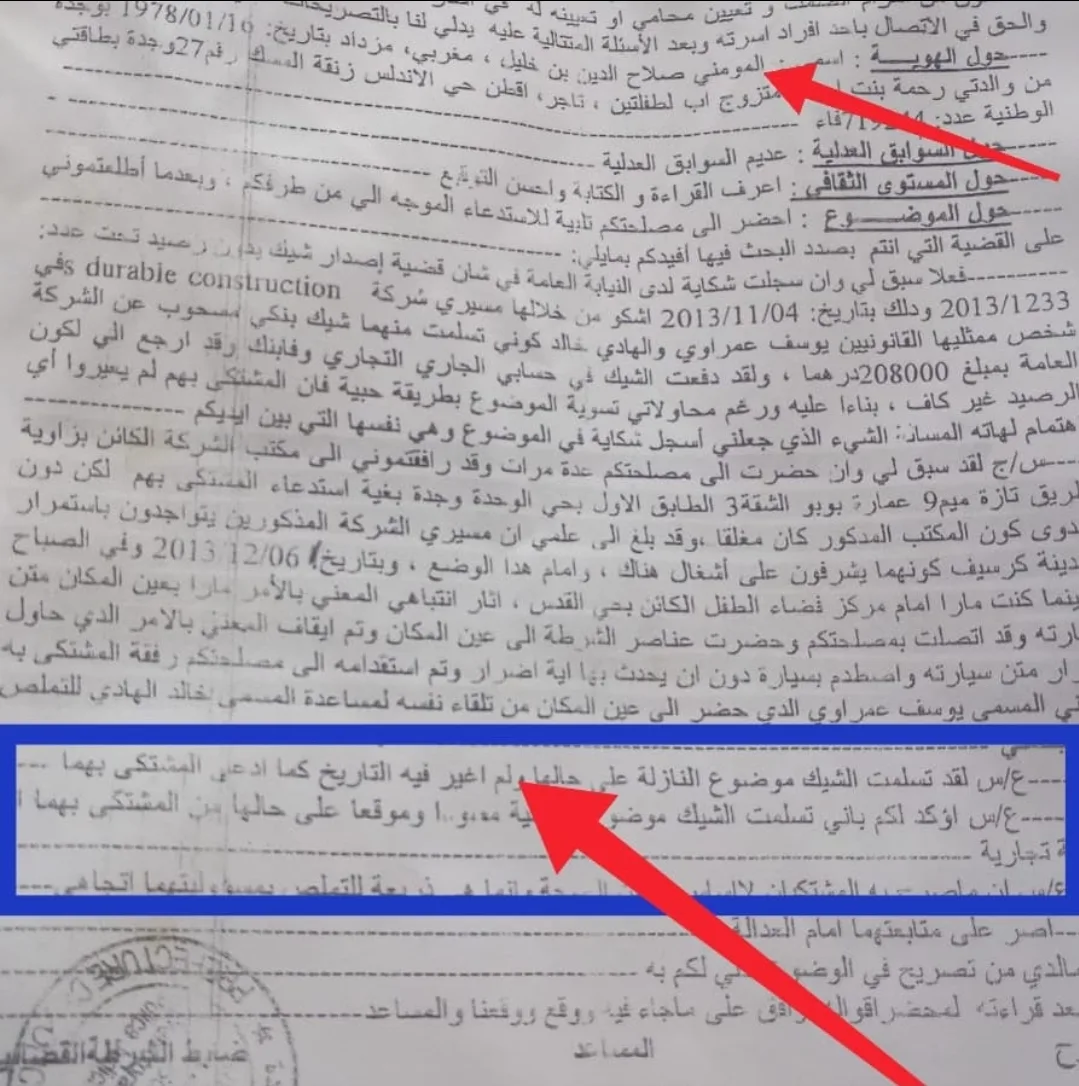 والحق في الاتصال باحد افراد اسرته وبعد الأسئلة المتتالية عليه يدلي لنا بالتصريحات
حول الهويــــة : المومني صلاح الدين بن خليل ، مغربي، مزداد بتاريخ: 1978/01/16 بوجدة
من والدتي رحمة بنت متزوج اب لطفلتين ، تاجر، اقطن حي الاندلس زنقة المسك رقم27وجدة بطاقتي
الوطنية عدد:
السوابق العدلية : عديم السوابق العدلية
حول المستوى الثقافي : اعرف القراءة و الكتابة واحسن التوقيع
حول الموضـــــوع : احضر الى مصلحتكم تلبية للاستدعاء الموجه الي من طرفكم ، وبعدما أطلعتموني
على القضية التي انتم بصدد البحث فيها أفيدكم بمايلي:
فعلا سبق لي وان سجلت شكاية لدى النيابة العامة في شان قضية إصدار شيك بدون رصيد تحت عدد:
2013/1233 ودلك بتاريخ: 2013/11/04 اشكو من خلالها مسيري شركة s durable construction في
شخص ممثليها القانونيين يوسف عمراوي والهادي خالد كوني تسلمت منهما شيك بنكي مسحوب عن الشركة
العامة بمبلغ 208000درهما ، ولقد دفعت الشيك في حسابي الجاري التجاري وفابنك وقد ارجع الي لكون
الرصيد غير كاف ، بناءا عليه ورغم محاولاتي تسوية الموضوع بطريقة حبية فان المشتكى بهم لم يعيروا أي
هتمام لهاته المسالة الشيء الذي جعلني أسجل شكاية في الموضوع وهي نفسها التي بين ايديكم
س/ج لقد سبق لي وان حضرت الى مصلحتكم عدة مرات وقد رافقتموني الى مكتب الشركة الكائن بزاوية
لريق تازة ميم9 عمارة بوبو الشقة3 الطابق الاول بحي الوحدة وجدة بغية استدعاء المشتكى بهم لكن دون
دوى كون المكتب المدكور كان مغلقا ،وقد بلغ الى علمي ان مسيري الشركة المذكورين يتواجدون باستمرار
دينة كرسيف كونهما يشرفون على أشغال هناك ، وامام هدا الوضع ، وبتاريخ 2013/12/06 وفي الصباح
ينما كنت مارا امام مركز فضاء الطفل الكائن بحي القدس ، اثار انتباهي المعني بالأمر مارا بعين المكان متن
يارته وقد اتصلت بمصلحتكم وحضرت عناصر الشرطة الى عين المكان وتم ايقاف المعني بالامر الدي حاول
رار متن سيارته واصطدم بسيارة دون ان يحدث بها اية اضرار وتم استقدامه الى مصلحتكم رفقة المشتكى به
ني المسمى يوسف عمراوي الدي حضر الى عين المكان من تلقاء نفسه لمساعدة المسمى خالد الهادي للتملص
ع/س لقد تسلمت الشيك موضوع النازلة على حالها ولم اغير فيه التاريخ كما ادعى المشتكى بهما
ع/س اؤكد لكم باني تسلمت الشيك موضوع وموقعا على حالها من المشتكى بهما
ة تجارية
ع/س ان ماصرح به المشتكيان لااساس وانما هي ذريعة للتملص بمسؤوليتهما اتجاهي
اصر على متابعتهما امام العدالة
مالدي من تصريح في الوضوع لكم به
عد قراءته لمحضراقواله وافق على ماجاء فيه ووقع ووقعنا والمساعد
المساعد ضابط الشرطة القضائية
PREFECTURE